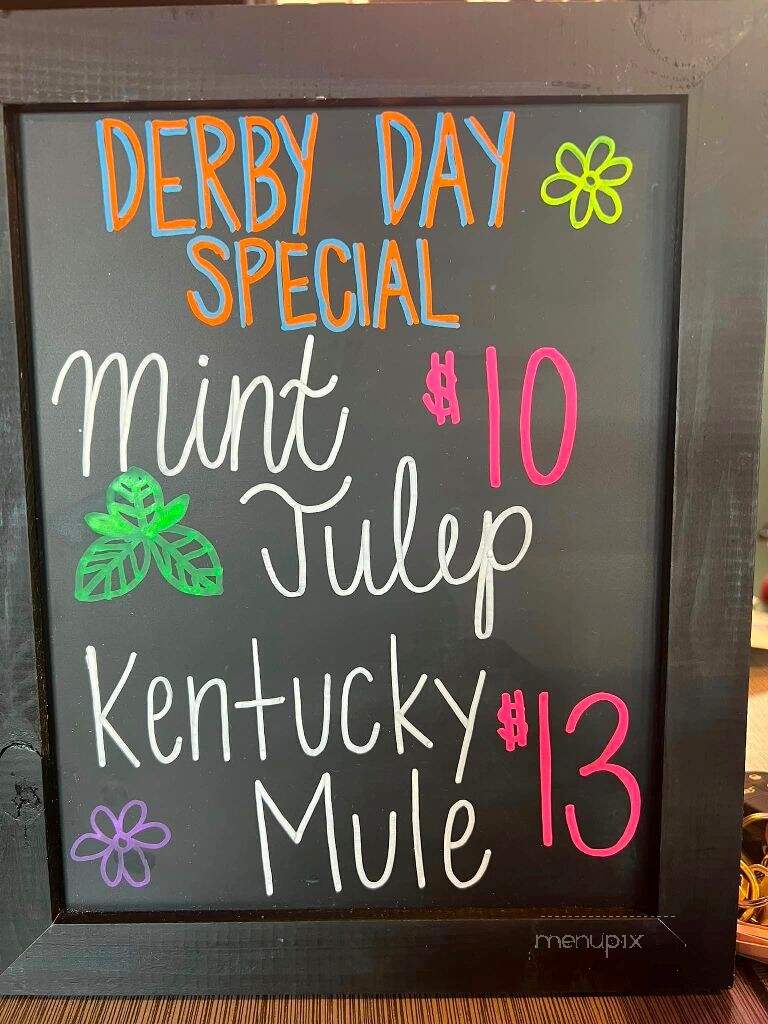 DERBY DAY
SPECIAL
Mint $10
Julep
Kentucky $13
Mule
menupix